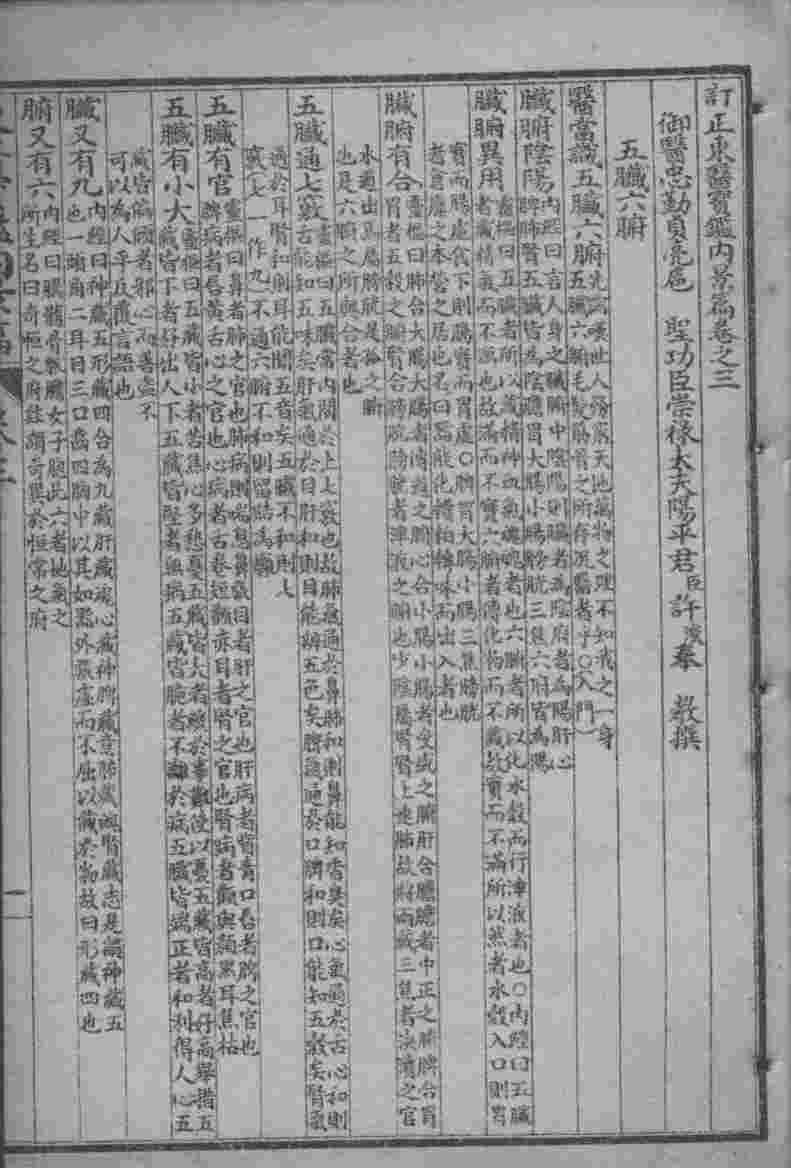 訂正東醫寶鑑內景篇卷之三
御醫忠勤貞亮扈 聖功臣崇祿大夫陽平君臣許浚奉 敎撰
五臟六腑
醫當識五臟六腑
先儒嘆世人務窮天地萬物之理不知我之一身
五臟六腑毛髮筋骨之所存況醫者乎○入門
臟腑陰陽
內經曰言人身之臟腑中陰陽則臟者為陰府者為陽肝心
脾肺腎五臟皆為陰膽胃大腸小腸膀胱三焦六府皆為陽
臟腑異用
靈樞曰五臟者所以藏精神血氣魂魄者也六腑者所以化水穀而行津液者也○內經曰五臟
者藏精氣而不瀉也故滿而不實六腑者傳化物而不藏故實而不滿所以然者水穀入口則胃
實而腸虛食下則腸實而胃虛○脾胃大腸小腸三焦膀胱
者倉廩之本營之居也名曰器能化糟粕轉味而出入者也
臟腑有合
靈樞曰肺合大腸大腸者傳道之腑心合小腸小腸者受盛之腑肝合膽膽者中正之腑脾合胃
胃者五穀之腑腎合膀胱膀胱者津液之腑也少陰屬腎腎上連肺故將兩藏三焦者決瀆之官
水道出焉屬膀胱是孤之腑
也是六腑之所與合者也
五臟通七竅
靈樞曰五臟常內閱於上七竅也故肺氣通於鼻肺和則鼻能知香臭矣心氣通於舌心和則
舌能知五味矣肝氣通於目肝和則目能辨五色矣脾氣通於口脾和則口能知五穀矣腎氣
通於耳腎和則耳能聞五音矣五臟不和則七
竅(七一作九)不通六腑不和則留結為癰
五臟有官
靈樞曰鼻者肺之官也肺病則喘息鼻張目者肝之官也肝病者眥青口唇者脾之官也
脾病者唇黃舌心之官也心病者舌卷短顴赤耳者腎之官也腎病者顴與顏黑耳焦枯
五臟有小大
靈樞曰五臟皆小者苦焦心多愁憂五臟皆大者緩於事難使以憂五藏皆高者好高舉措五
臟皆下者好出人下五臟皆堅者無病五藏皆脆者不離於病五臟皆端正者和利得人心五
藏皆偏傾者邪心而善盜不
可以為人平反覆言語也
臟又有九
內經曰神藏五形藏四合為九藏肝藏魂心藏神脾藏意肺藏魄腎藏志是謂神藏五
也一頭角二耳目三口齒四胸中以其如器外張虛而不屈以藏於物故曰形藏四也
腑又有六
內經曰腦髓骨脉膽女子胞此六者地氣之
所生名曰奇恒之府註謂奇異於恒常之府
一